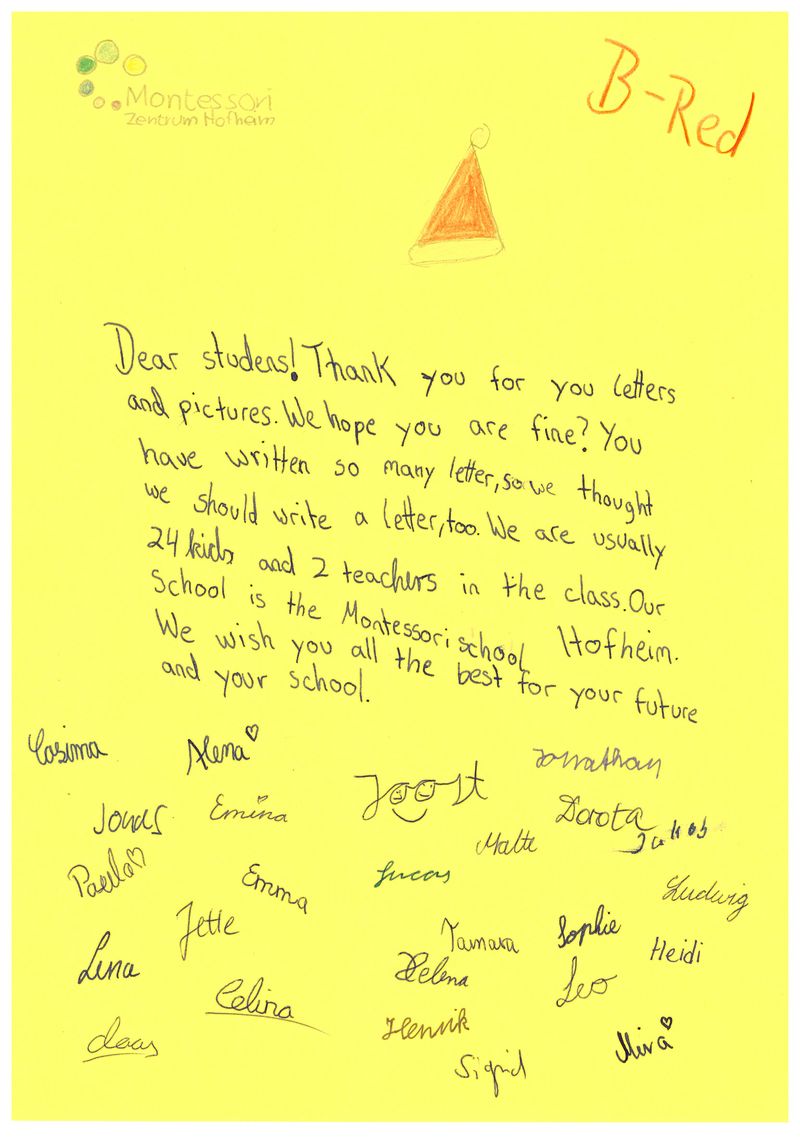 Montessori
Zentrum Hofheim
B-Red
Dear studens! Thank you for you letters
and pictures. We hope you are fine? You
have written so many letter, so we thought
we should write a letter, too. We are usually
24 kids and 2 teachers in the class. Our
School is the Montessori school Hofheim.
We wish you all the best for your future
and your school.
Cosima Alena Jonathan
Joost
Jonas Emina Dorota
Malte Jakob
Paula Emma Lucas Ludwig
Jette Tamara Sophie Heidi
Lena Helena Leo
Celina Henrik
Mira
Sigrid